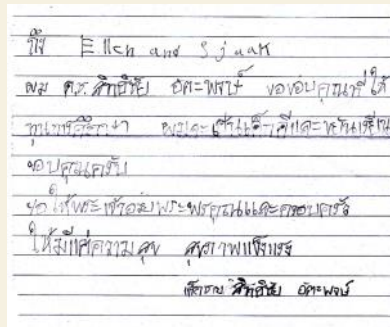 ถึง Ellen and Sjaak
ผม ด.ช. สิทธิชัย อตะพรหม์ ขอขอบคุณที่ให้
ทุนการศึกษา ผมจะเป็นเด็กดีและขยันเรียน
ขอบคุณครับ
ขอให้พระเจ้าอวยพระพรคุณและครอบครัว
ให้มีแต่ความสุข สุขภาพแข็งแรง
เด็กชาย สิทธิชัย